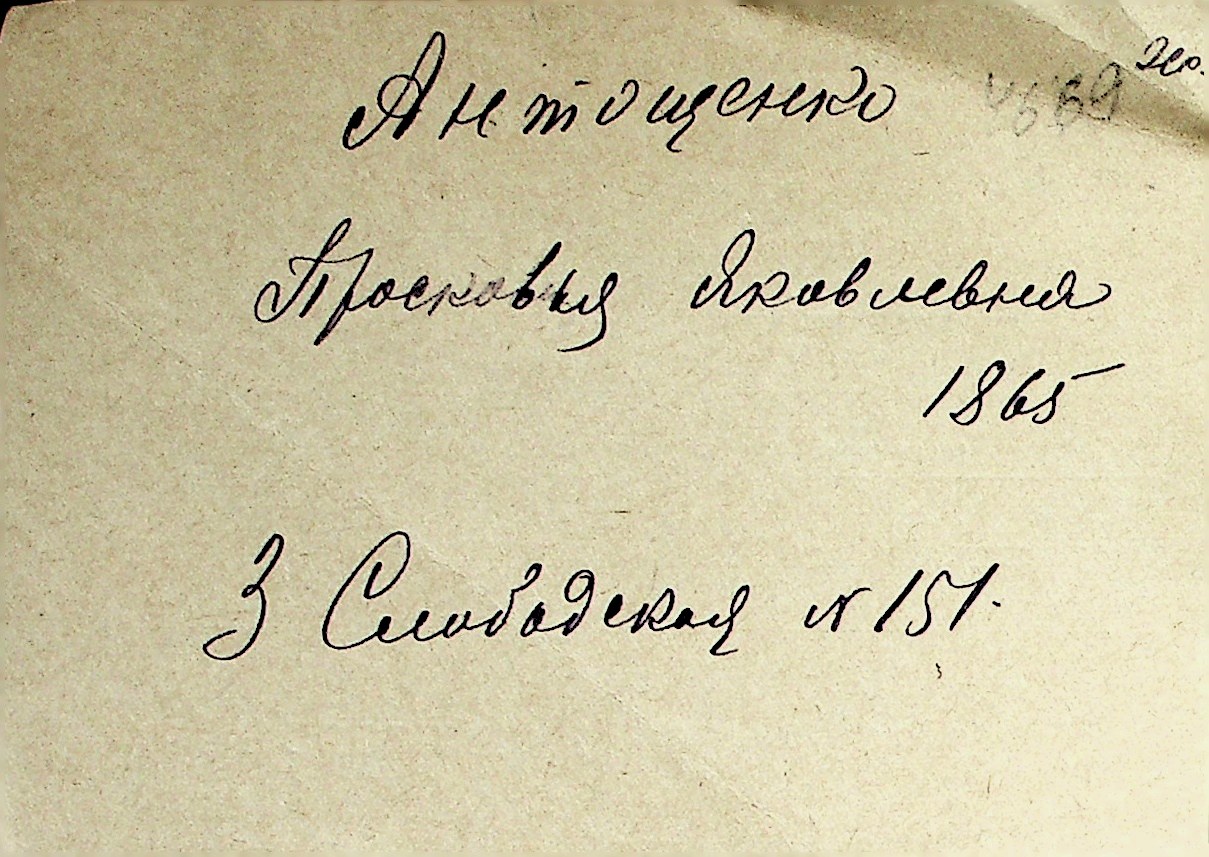 Антощенко
Просковья Яковлевна
1865
3 Слободская № 151.